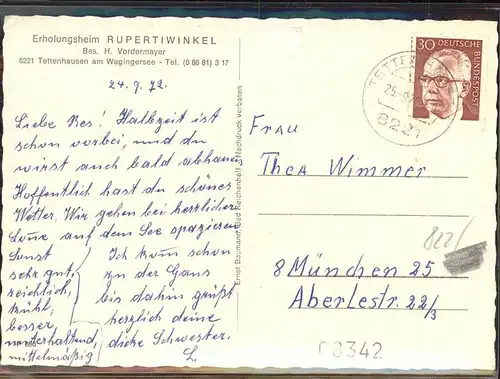 Erholungsheim RUPERTIWINKEL
Bes. H. Vordermayer
8221 Tettenhausen am Wagingersee - Tel. (0 86 81) 3 17
24.9.72.
Liebe Res! Halbzeit ist
schon vorbei, und du
wirst auch bald abhauen.
Hoffentlich hast du schönes
Wetter. Wir gehen bei herrlicher
Sonne auf dem See spazieren
Sonst
sehr gut,
reichlich,
kühl,
besser,
unterhaltend,
mittelmäßig
Ich kom schon
zu der Gaus
bis dahin grüßt
herzlich deine
dicke Schwester.
L.
Ernst Baumann, Bad Reichenhall Nachdruck verboten
30 DEUTSCHE BUNDESPOST
8221
Frau
Thea Wimmer
8 München 25
Aberlestr. 22/3
822/
03342